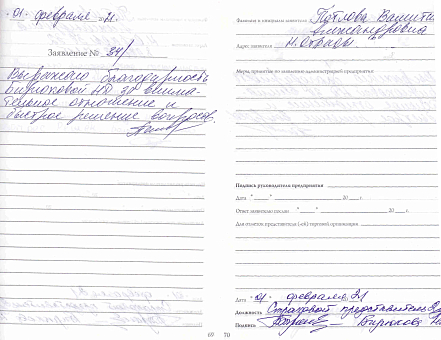 "01" февраля 21.
Заявление № 34/
Выражаю благодарность
Бирюковой НВ за внима-
тельное отношение и
быстрое решение вопросов.
69
Фамилия и инициалы заявителя
Александровна
Адрес заявителя Н. Отрады
Меры, принятые по заявлению администрацией предприятия:
Подпись руководителя предприятия
Дата " " 20 г.
Ответ заявителю послан " " 20 г.
Для отметок представителя (-ей) торговой организации
Дата "01" февраля 21
Должность Страховой представитель
Подпись Бирюкова
70